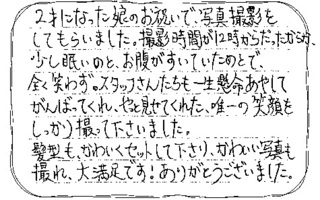 2才になった娘のお祝いで、写真撮影を
してもらいました。撮影時間が12時からだったからか、
少し眠いのと、お腹がすいていたのとで
全く笑わず。スタッフさんたちも一生懸命あやして
がんばってくれ、やっと見せてくれた、唯一の笑顔を
しっかり撮って下さいました。
髪型も、かわいくセットして下さり、かわいい写真も
撮れ、大満足です!ありがとうございました。